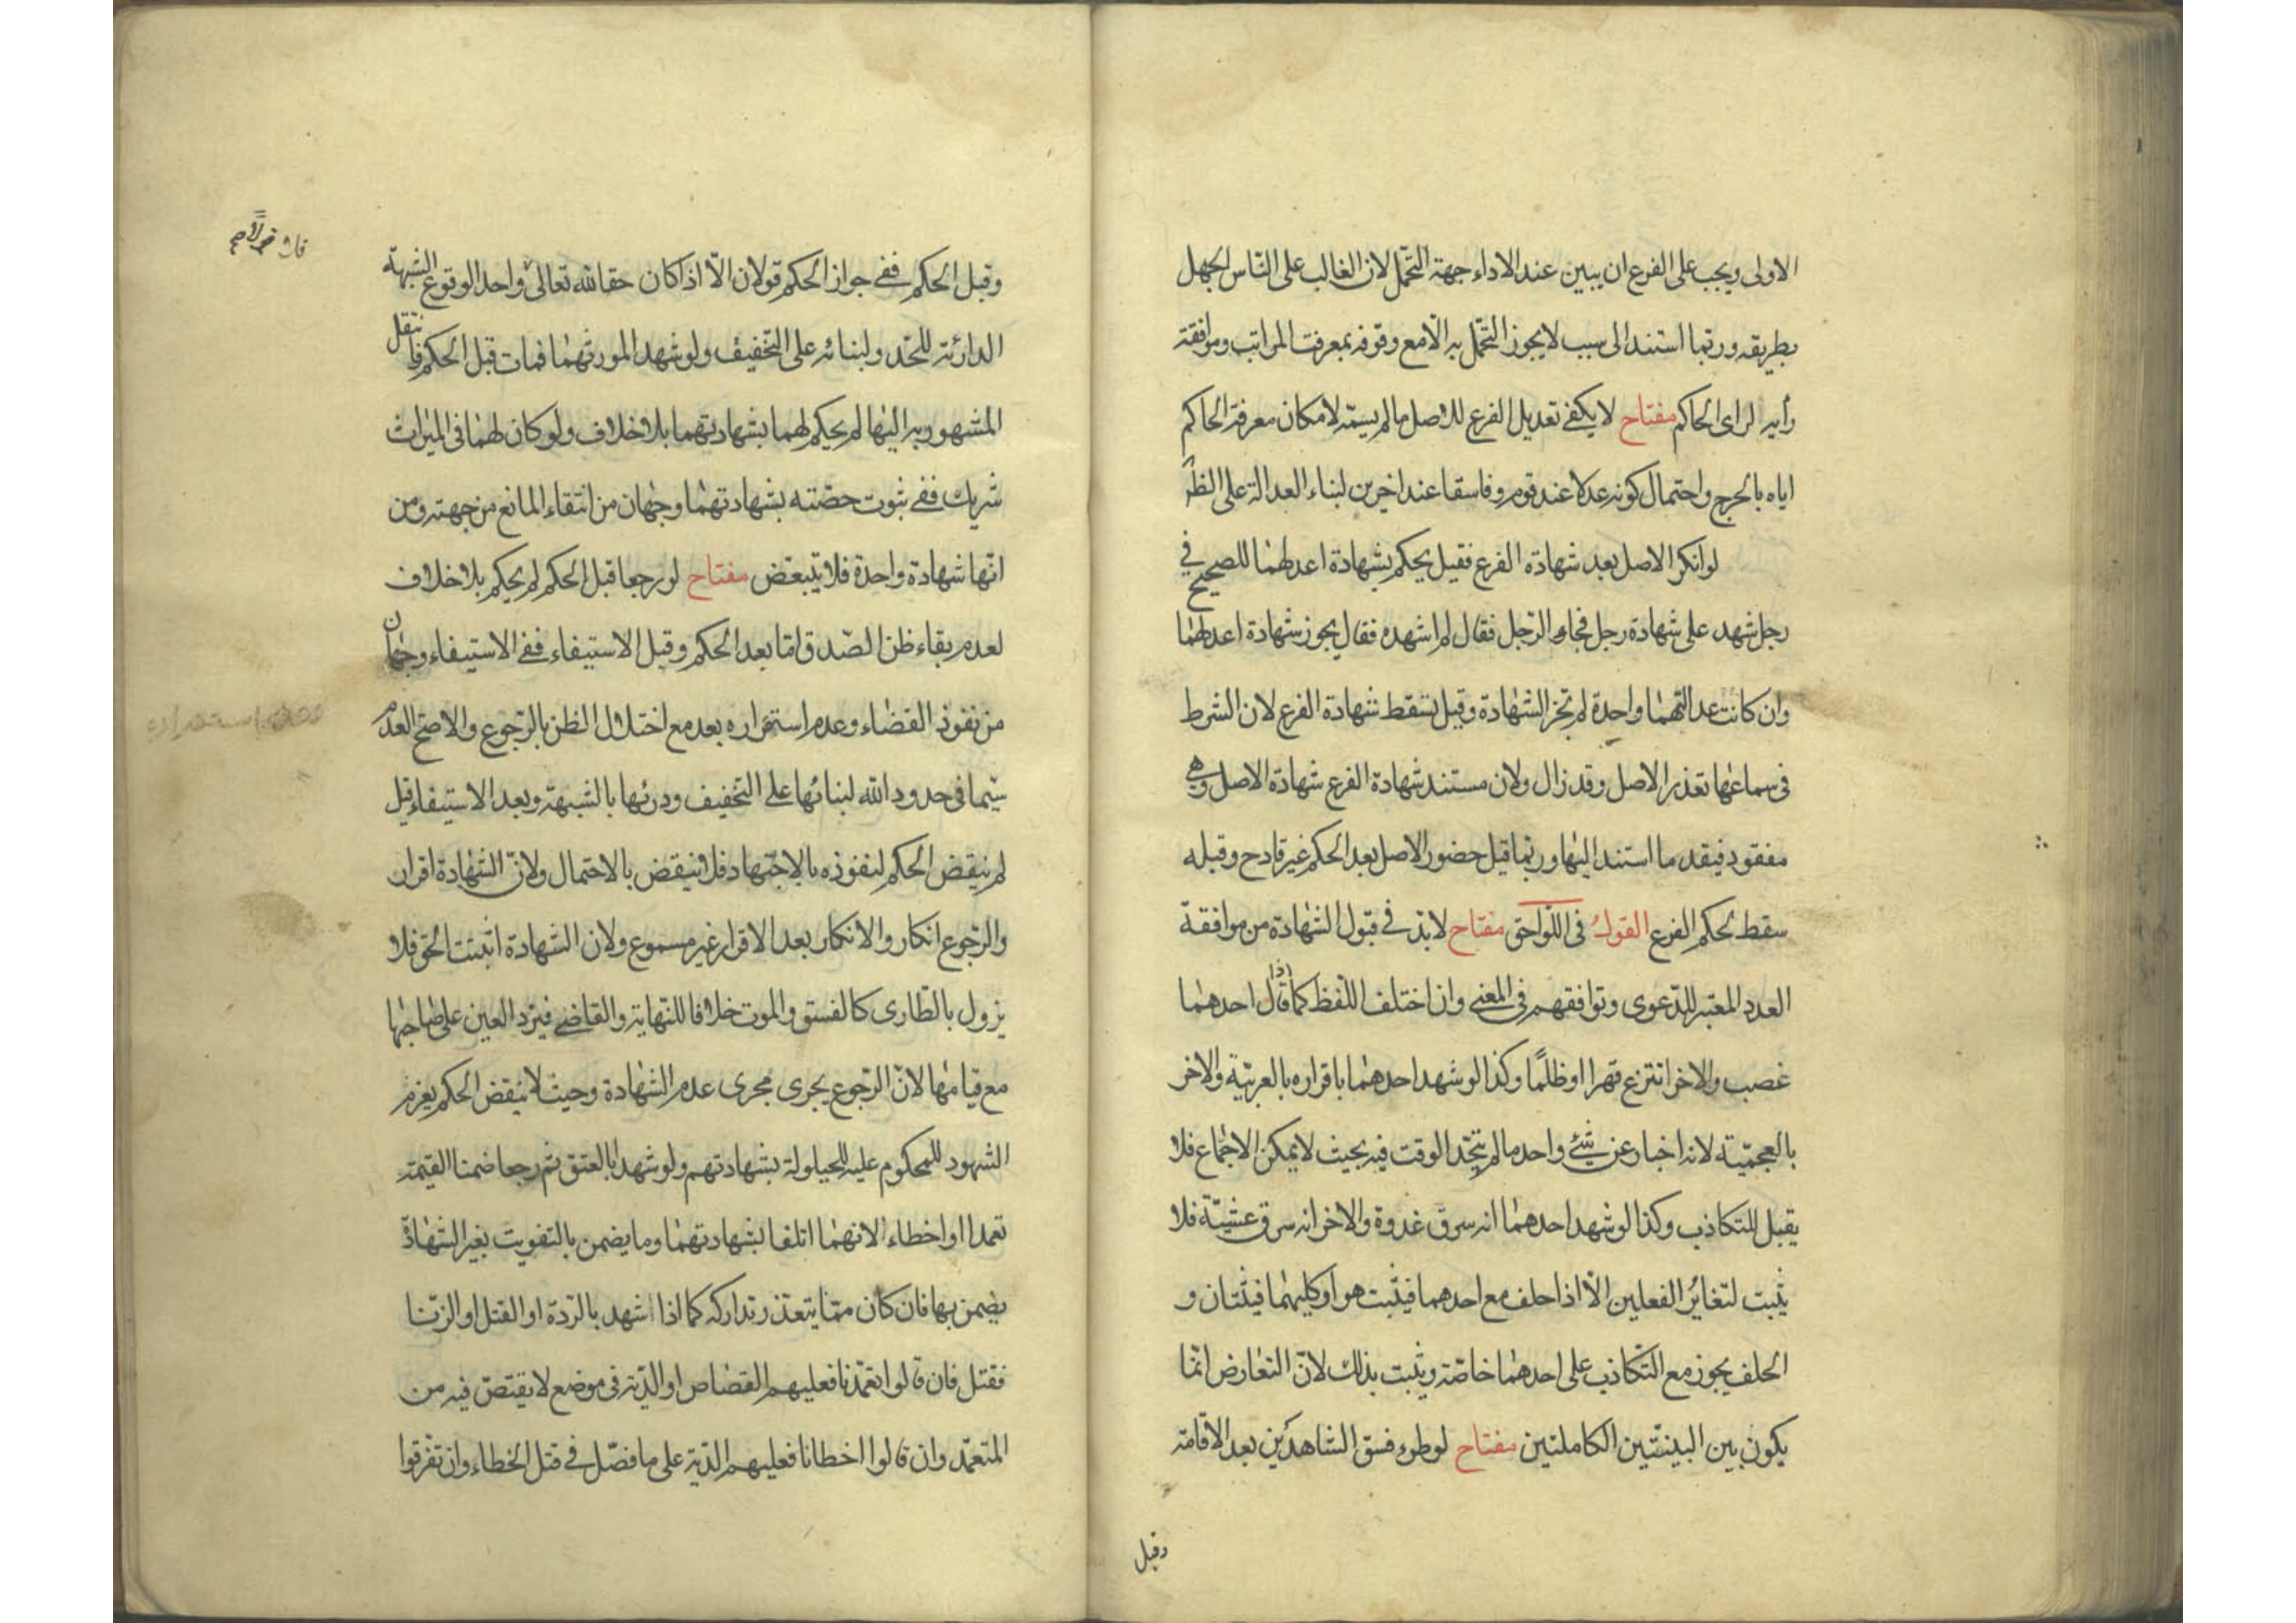 الاولى ويجب على الفرع ان يبين عند الاداء جهة التحمّل لان الغالب على النّاس الجهل
بطريقه وربّما استند الى سبب لا يجوز التحمّل به الّا مع وقوفه بمعرفت المراتب وموافقة
رأيه لراى الحاكم مفتاح لا يكفى تعديل الفرع للاصل ما لم يسمّه لامكان معرفة الحاكم
اياه بالجرح واحتمال كونه عدلا عند قوم وفاسقا عند اخرين لبناء العدالة على الظنّ
لو انكر الاصل بعد شهادة الفرع فقيل يحكم بشهادة اعدلهما للصحيح فى
رجل شهد على شهادة رجل فجاء الرّجل فقال لم اشهده فقال يجوز شهادة اعدلهما
وان كانت عدالتهما واحدة لم تجز الشّهادة وقيل تسقط شهادة الفرع لان الشرط
فى سماعها تعذر الاصل وقد زال ولان مستند شهادة الفرع شهادة الاصل وهى
مفقود فيفقد ما استند اليها وربّما قيل حضور الاصل بعد الحكم غير قادح وقبله
سقط لحكم الفرع القول فى اللّواحق مفتاح لا بدّ فى قبول الشّهادة من موافقة
العدد المعتبر للدّعوى وتوافقهم فى المعنى وان اختلف اللّفظ كما اذا قال احدهما
غصب والاخر انتزع قهرا او ظلمًا وكذا لو شهد احدهما باقراره بالعربيّة والاخر
بالعجميّة لانه اخبار عن شئ واحد ما لم يتّحد الوقت فيه بحيث لا يمكن الاجتماع فلا
يقبل للتكاذب وكذا لو شهد احدهما انه سرق غدوة والاخر انه سرق عشيّة فلا
يثبت لتغاير الفعلين الّا اذا حلف مع احدهما فيثبت هو او كليهما فيثبتان و
الحلف يجوز مع التّكاذب على احدهما خاصّة ويثبت بذلك لانّ التعارض انّما
يكون بين البينتين الكاملتين مفتاح لو طرء فسق الشاهدين بعد الاقامة
وقبل
وقبل الحكم ففى جواز الحكم قولان الّا اذا كان حقا لله تعالى واحد الوقوع الشبهة
الدارئة للحّد ولبنائه على التّخفيف ولو شهد المورثهما فمات قبل الحكم فانتقل
المشهور به اليهما لم يحكم لهما بشهادتهما بلا خلاف ولو كان لهما فى الميراث
شريك ففى ثبوت حصّته بشهادتهما وجهان من انتفاء المانع من جهته ومن
انّها شهادة واحدة فلا يتبعّض مفتاح لو رجعا قبل الحكم لم يحكم بلا خلاف
لعدم بقاء ظن الصّدق امّا بعد الحكم وقبل الاستيفاء ففى الاستيفاء وجهان
من نفوذ القضاء وعدم استقراره بعد مع اختلال الظن بالرّجوع والاصحّ العدم
سيّما فى حدود الله لبنائها على التخفيف ودرئها بالشبهة وبعد الاستيفاء قيل
لم ينقض الحكم لنفوذه بالاجتهاد فلا ينقض بالاحتمال ولانّ الشّهادة اقرار
والرّجوع انكار والانكار بعد الاقرار غير مسموع ولان الشهادة اثبتت الحق فلا
يزول بالطّارى كالفسق والموت خلافا للنّهاية والقاضى فيردّ العين على صاحبها
مع قيامها لانّ الرّجوع يجرى مجرى عدم الشّهادة وحيث لا ينقض الحكم يغرم
الشهود للمحكوم عليه للحيلولة بشهادتهم ولو شهدا بالعتق ثم رجعا ضمنا القيمة
تعمدا او اخطاء لانهما اتلفا بشهادتهما وما يضمن بالتفويت بغير الشّهادة
يضمن بها فان كان ممّا يتعذّر تداركه كما اذا شهد بالرّدة او القتل او الزّنا
فقتل فان قالوا تعمّدنا فعليهم القصاص او الدّية فى موضع لا يقتصّ فيه من
المتعمّد وان قالوا اخطانا فعليهم الدّية على ما فصّل فى قتل الخطاء وان تفرقوا
استقراره